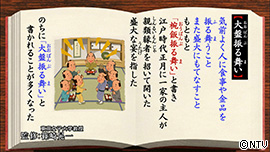 【大盤振る舞い】
おおばんぶ ま
気前よく人に食事や金品を
振る舞うこと
また盛大にもてなすこと
もともと
「椀飯振る舞い」と書き
江戸時代正月に一家の主人が
親類縁者を招いて開いた
盛大な宴を指した
のちに「大盤振る舞い」と
書かれることが多くなった
©NTV